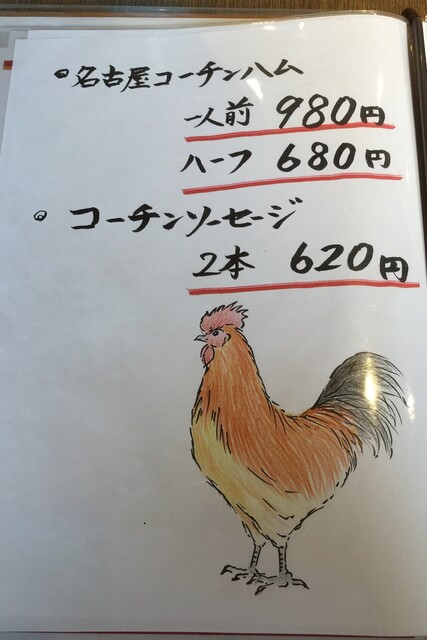 名古屋コーチンハム
一人前 980円
ハーフ 680円
コーチンソーセージ
2本 620円